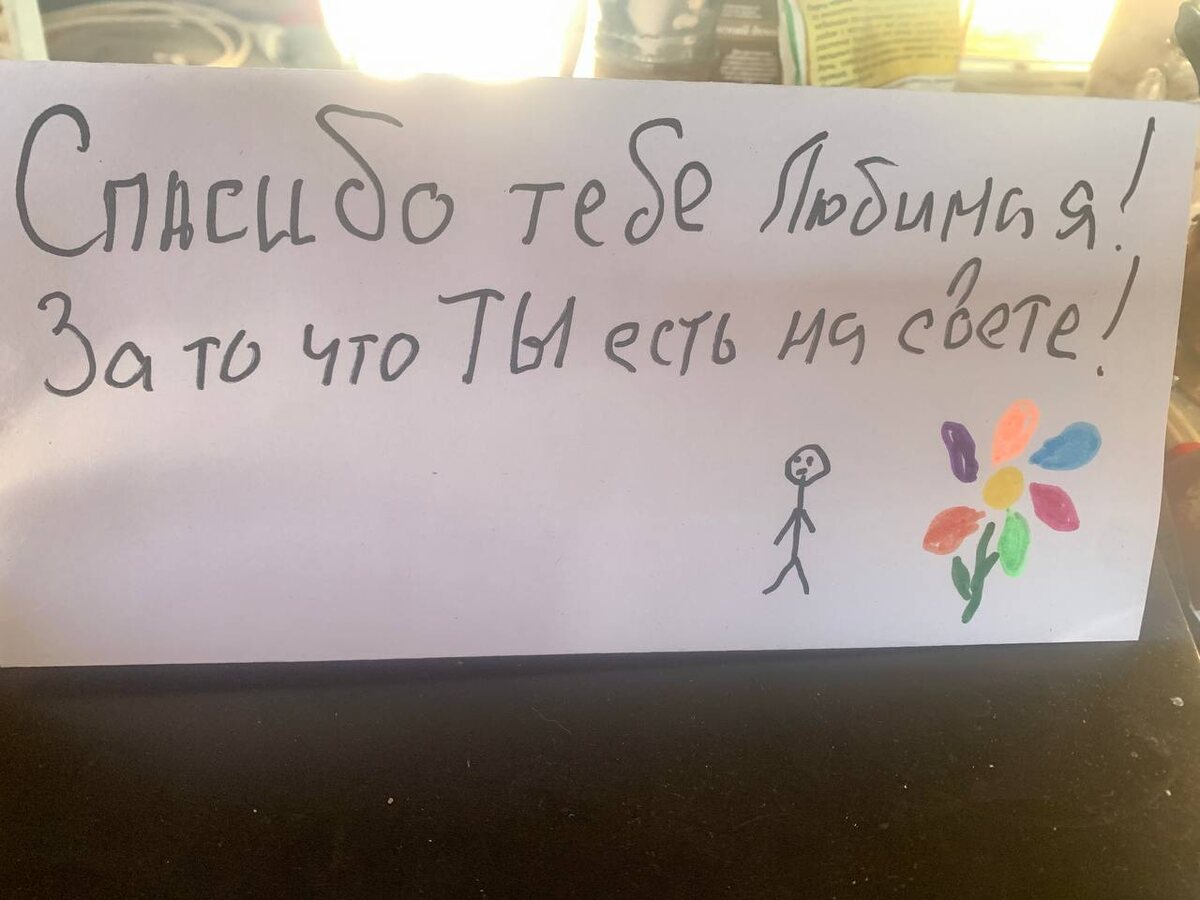 Спасибо тебе Любимая!
За то что ТЫ есть на свете!